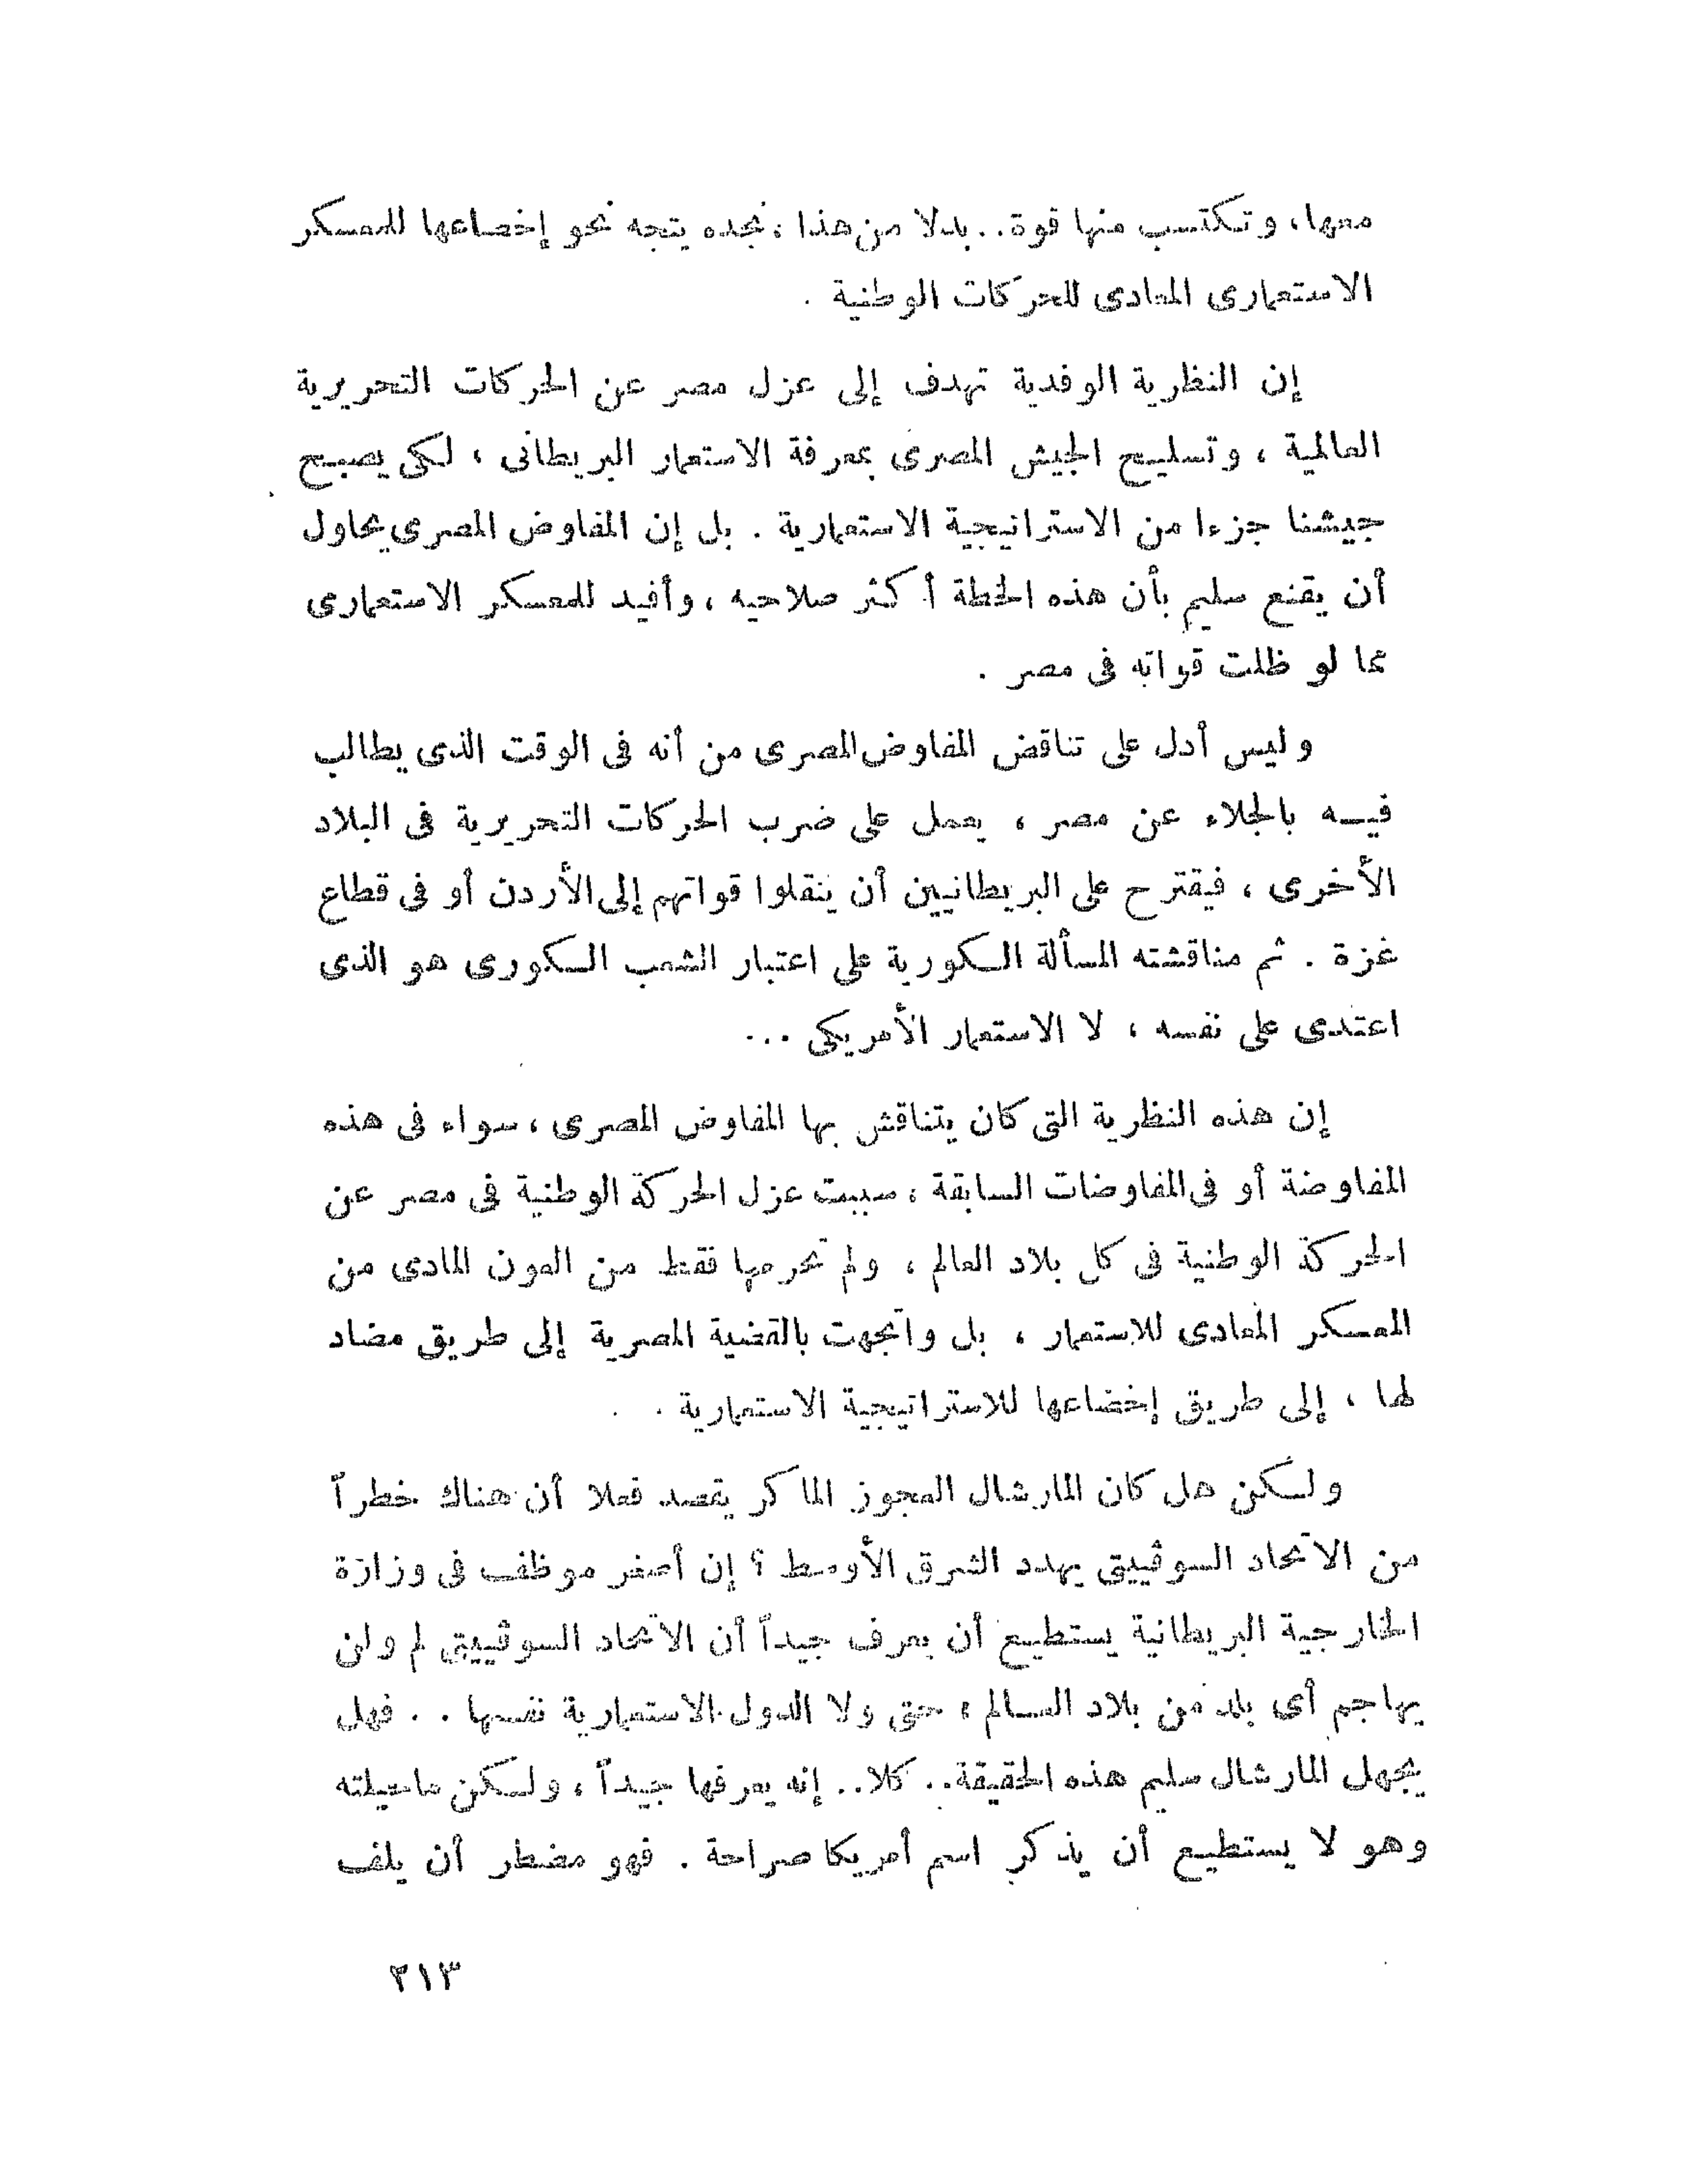 معها، وتكتسب منها قوة.. بدلا من هذا ، نجده يتجه نحو إخضاعها للمعسكر
الاستعمارى المعادى للحركات الوطنية .
إن النظرية الوفدية تهدف إلى عزل مصر عن الحركات التحريرية
العالمية ، وتسليح الجيش المصرى بمعرفة الاستعمار البريطانى ، لكى يصبح
جيشنا جزءا من الاستراتيجية الاستعمارية . بل إن المفاوض المصرى يحاول
أن يقنع سليم بأن هذه الخطة أكثر صلاحيه ، وأفيد للمعسكر الاستعمارى
مما لو ظلت قواته فى مصر .
وليس أدل على تناقض المفاوض المصرى من أنه فى الوقت الذى يطالب
فيه بالجلاء عن مصر ، يعمل على ضرب الحركات التحريرية فى البلاد
الأخرى ، فيقترح على البريطانيين أن ينقلوا قواتهم إلى الأردن أو فى قطاع
غزة . ثم مناقشته المسألة الكورية على اعتبار الشعب الكورى هو الذى
اعتدى على نفسه ، لا الاستعمار الأمريكى ...
إن هذه النظرية التى كان يتناقش بها المفاوض المصرى ، سواء فى هذه
المفاوضة أو فى المفاوضات السابقة ، سببت عزل الحركة الوطنية فى مصر عن
الحركة الوطنية فى كل بلاد العالم ، ولم تحرمها فقط من العون المادى من
المعسكر المعادى للاستعمار ، بل واتجهت بالقضية المصرية إلى طريق مضاد
لها ، إلى طريق إخضاعها للاستراتيجية الاستعمارية .
ولكن هل كان المارشال العجوز الماكر يقصد فعلا أن هناك خطراً
من الاتحاد السوڤييتى يهدد الشرق الأوسط ؟ إن أصغر موظف فى وزارة
الخارجية البريطانية يستطيع أن يعرف جيداً أن الاتحاد السوڤييتى لم ولن
يهاجم أى بلد من بلاد العالم ؛ حتى ولا الدول الاستعمارية نفسها . . فهل
يجهل المارشال سليم هذه الحقيقة.. كلا.. إنه يعرفها جيداً ، ولكن ما حيلته
وهو لا يستطيع أن يذكر اسم أمريكا صراحة . فهو مضطر أن يلف
٢١٣